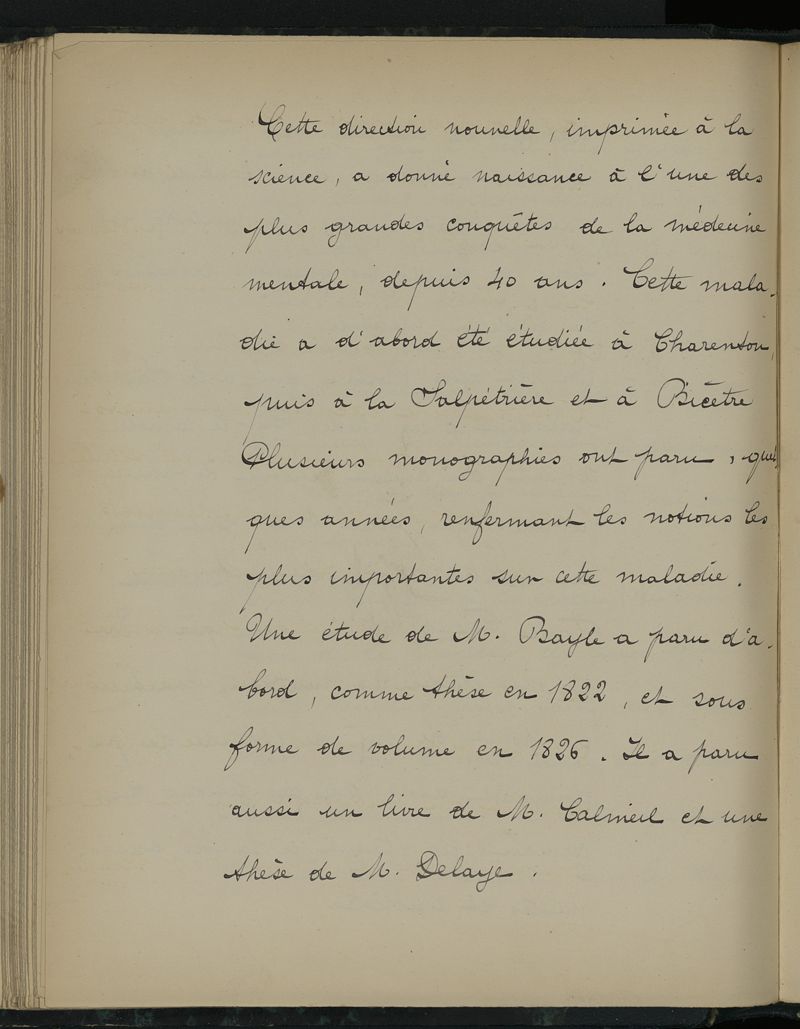 Cette direction nouvelle, imprimée à la
science, a donné naissance à l'une des
plus grandes conquêtes de la médecine
mentale, depuis 40 ans. Cette mala-
die a d'abord été étudiée à Charenton,
puis à la Salpétrière et à Bicêtre
Plusieurs monographies ont paru, quel
ques années, renfermant les notions les
plus importantes sur cette maladie.
Une étude de M. Bayle a paru d'a-
bord, comme thèse en 1822, et sous
forme de volume en 1826. Il a paru
aussi un livre de M. Calmeil et une
thèse de M. Delaye.